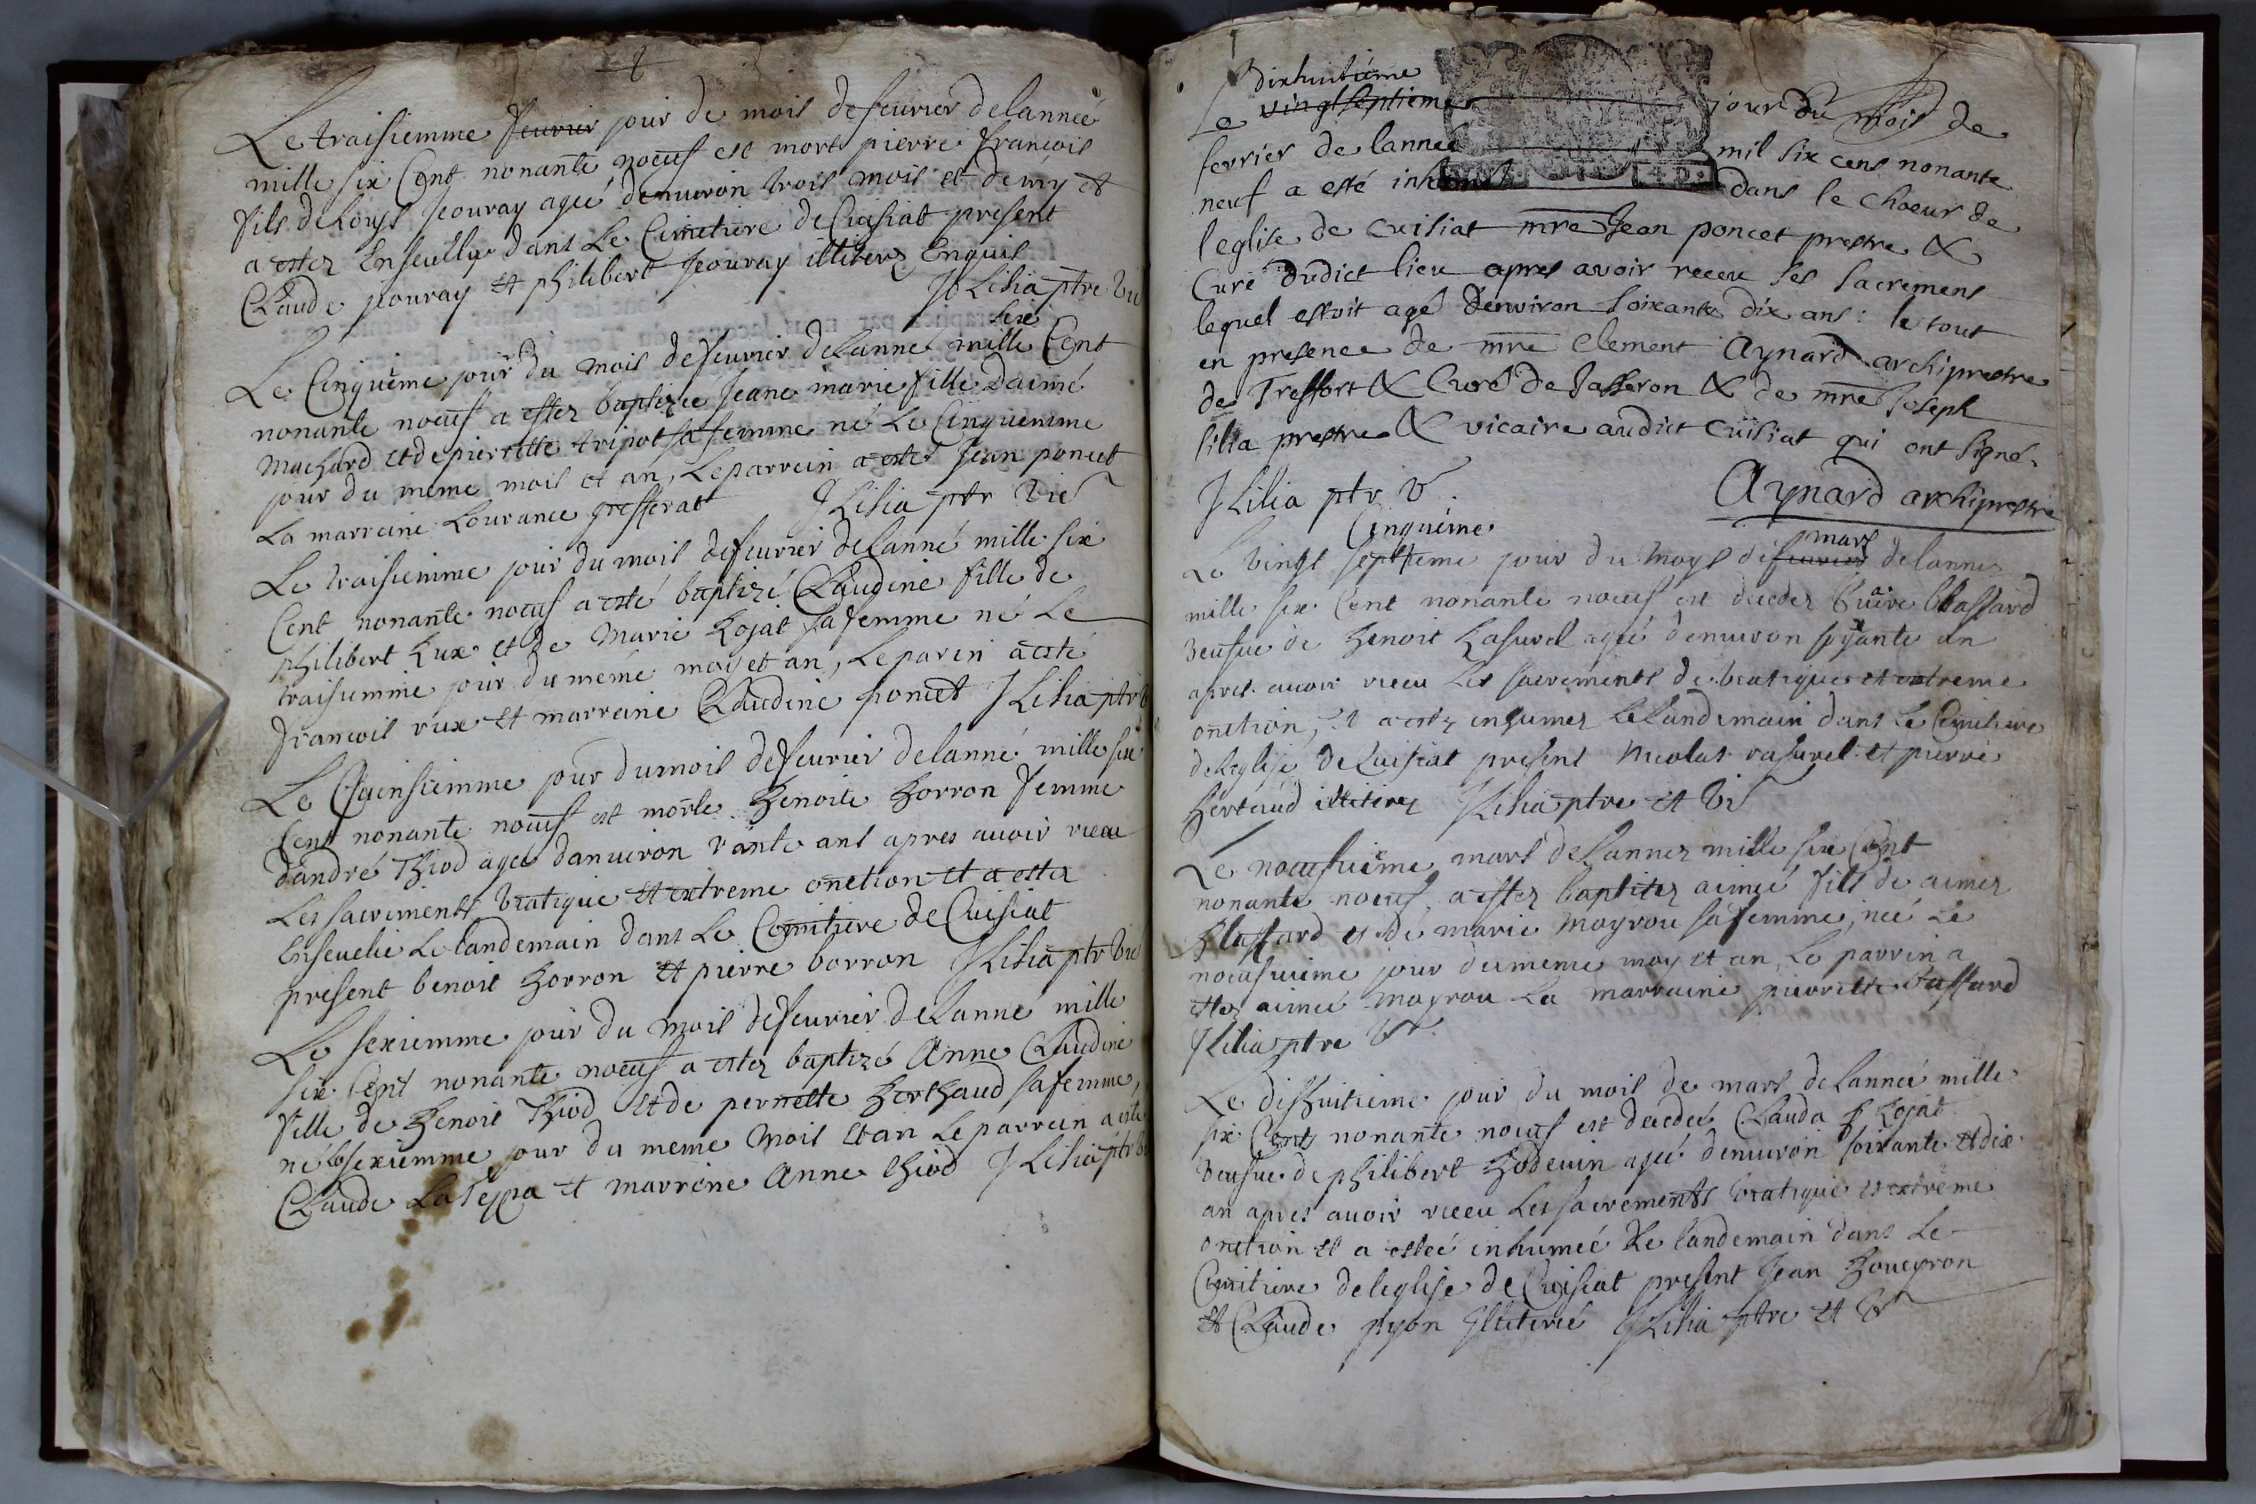 Le traisiemme feurier jour de mois de feurier de lanneé
mille six Cent nonante noeuf est mort pierre françois
fils de Louys Jouray ageé denuiron trois mois et demy et
a estez Enseuelly dans Le Cimetiere de Cuisiat present
Claude jouray et philibert Jouray illiterez Enquis
J Lilia ptre Vi
six
Le Cinquième jour du mois de feurier de Lanneé mille Cent
nonante noeuf a estez baptizeé Jeane marie fille Daimé
Machard et de pierrette tripot sa femme né Le Cinquiemme
jour du meme mois et an, Le parrein a esté Jean poncet
La marreine Lourance grefferat J Lilia ptr Vic
Le traisiemme jour du mois de feurier de Lanné mille six
Cent nonante noeuf a esté baptizé Claudine fille de
philibert Rux et de Marie Rojat sa femme né Le
traisiemme jour du meme mois et an, Le parin a esté
francois rux et marreine Claudine poncet J Lilia ptr
Le jour du mois de feurier de lanné mille six
Cent nonante noeuf est morte Benoite Borron femme
dandré Thiod ageé danuiron ans apres auoir receu
Les sacrements viatique et extreme onction et a estez
Enseuelie Le landemain dans Le Cemitiere de Cuisiat
present benoit Borron et pierre borron J Lilia ptr Vi
Le sexiemme jour du mois de feurier de Lanné mille
six Cent nonante noeuf a estez baptizé Anne Claudine
fille de Benoit Thiod et de pernette Berthaud sa femme,
né Le sexiemme jour du meme mois et an Le parrein a esté
Claude La Teppa et marreine Anne thiod J Lilia ptr
dixhuitième
Le vingtseptieme jour du mois de
fevrier de lanneé mil six cens nonante
neuf a esté inhumé dans le choeur de
leglise de cuisiat mre Jean poncet prestre &
Curé dudict lieu apres avoir receu ses sacremens
lequel estoit agé denviron soixante dix ans: le tout
en presence de mre clement Aynard archiprestre
de Treffort & Curé de Jasseron & de mre Joseph
lilia prestre & vicaire audict Cuisiat qui ont signé.
J Lilia ptr V. Aynard archiprestre
Cinquième mars
Le Vingt septieme jour du moys de feurier de lannee
mille six Cent nonante noeuf est decedez Blassard
veufue de Benoit Rasurel ageé denuiron an
apres auoir receu Les sacrements de viatique et extreme
onction, et a estez inhumez Le landemain dans Le Cemitiere
de Leglise de Cuisiat present Nicolas rasurel et pierre
Bertaud illiterez J Lilia ptre et Vi
Le noeufuième mars de Lanneé mille six Cent
nonante noeuf a estez baptisez aimeé fils de aimez
Blassard et de marie Moyrou sa femme, neé Le
noeufuieme jour du meme moy et an, Le parrin a
estez aimeé moyrou La marraine pierrette blassard
J Lilia ptre V.
Le dishuitieme jour du mois de mars de Lanneé mille
six Cent nonante noeuf est decedeé Clauda Rojat
veufue de philibert Bodeuin ageé denuiron soixante et dix
an apres auoir receu Les sacrements viatique et extrême
onction et a esteé inhumeé Le landemain dans Le
Cemitiere de leglise de Cuisiat present Jean Boueyron
et Claude pyon Illiteré J Lilia ptre et V